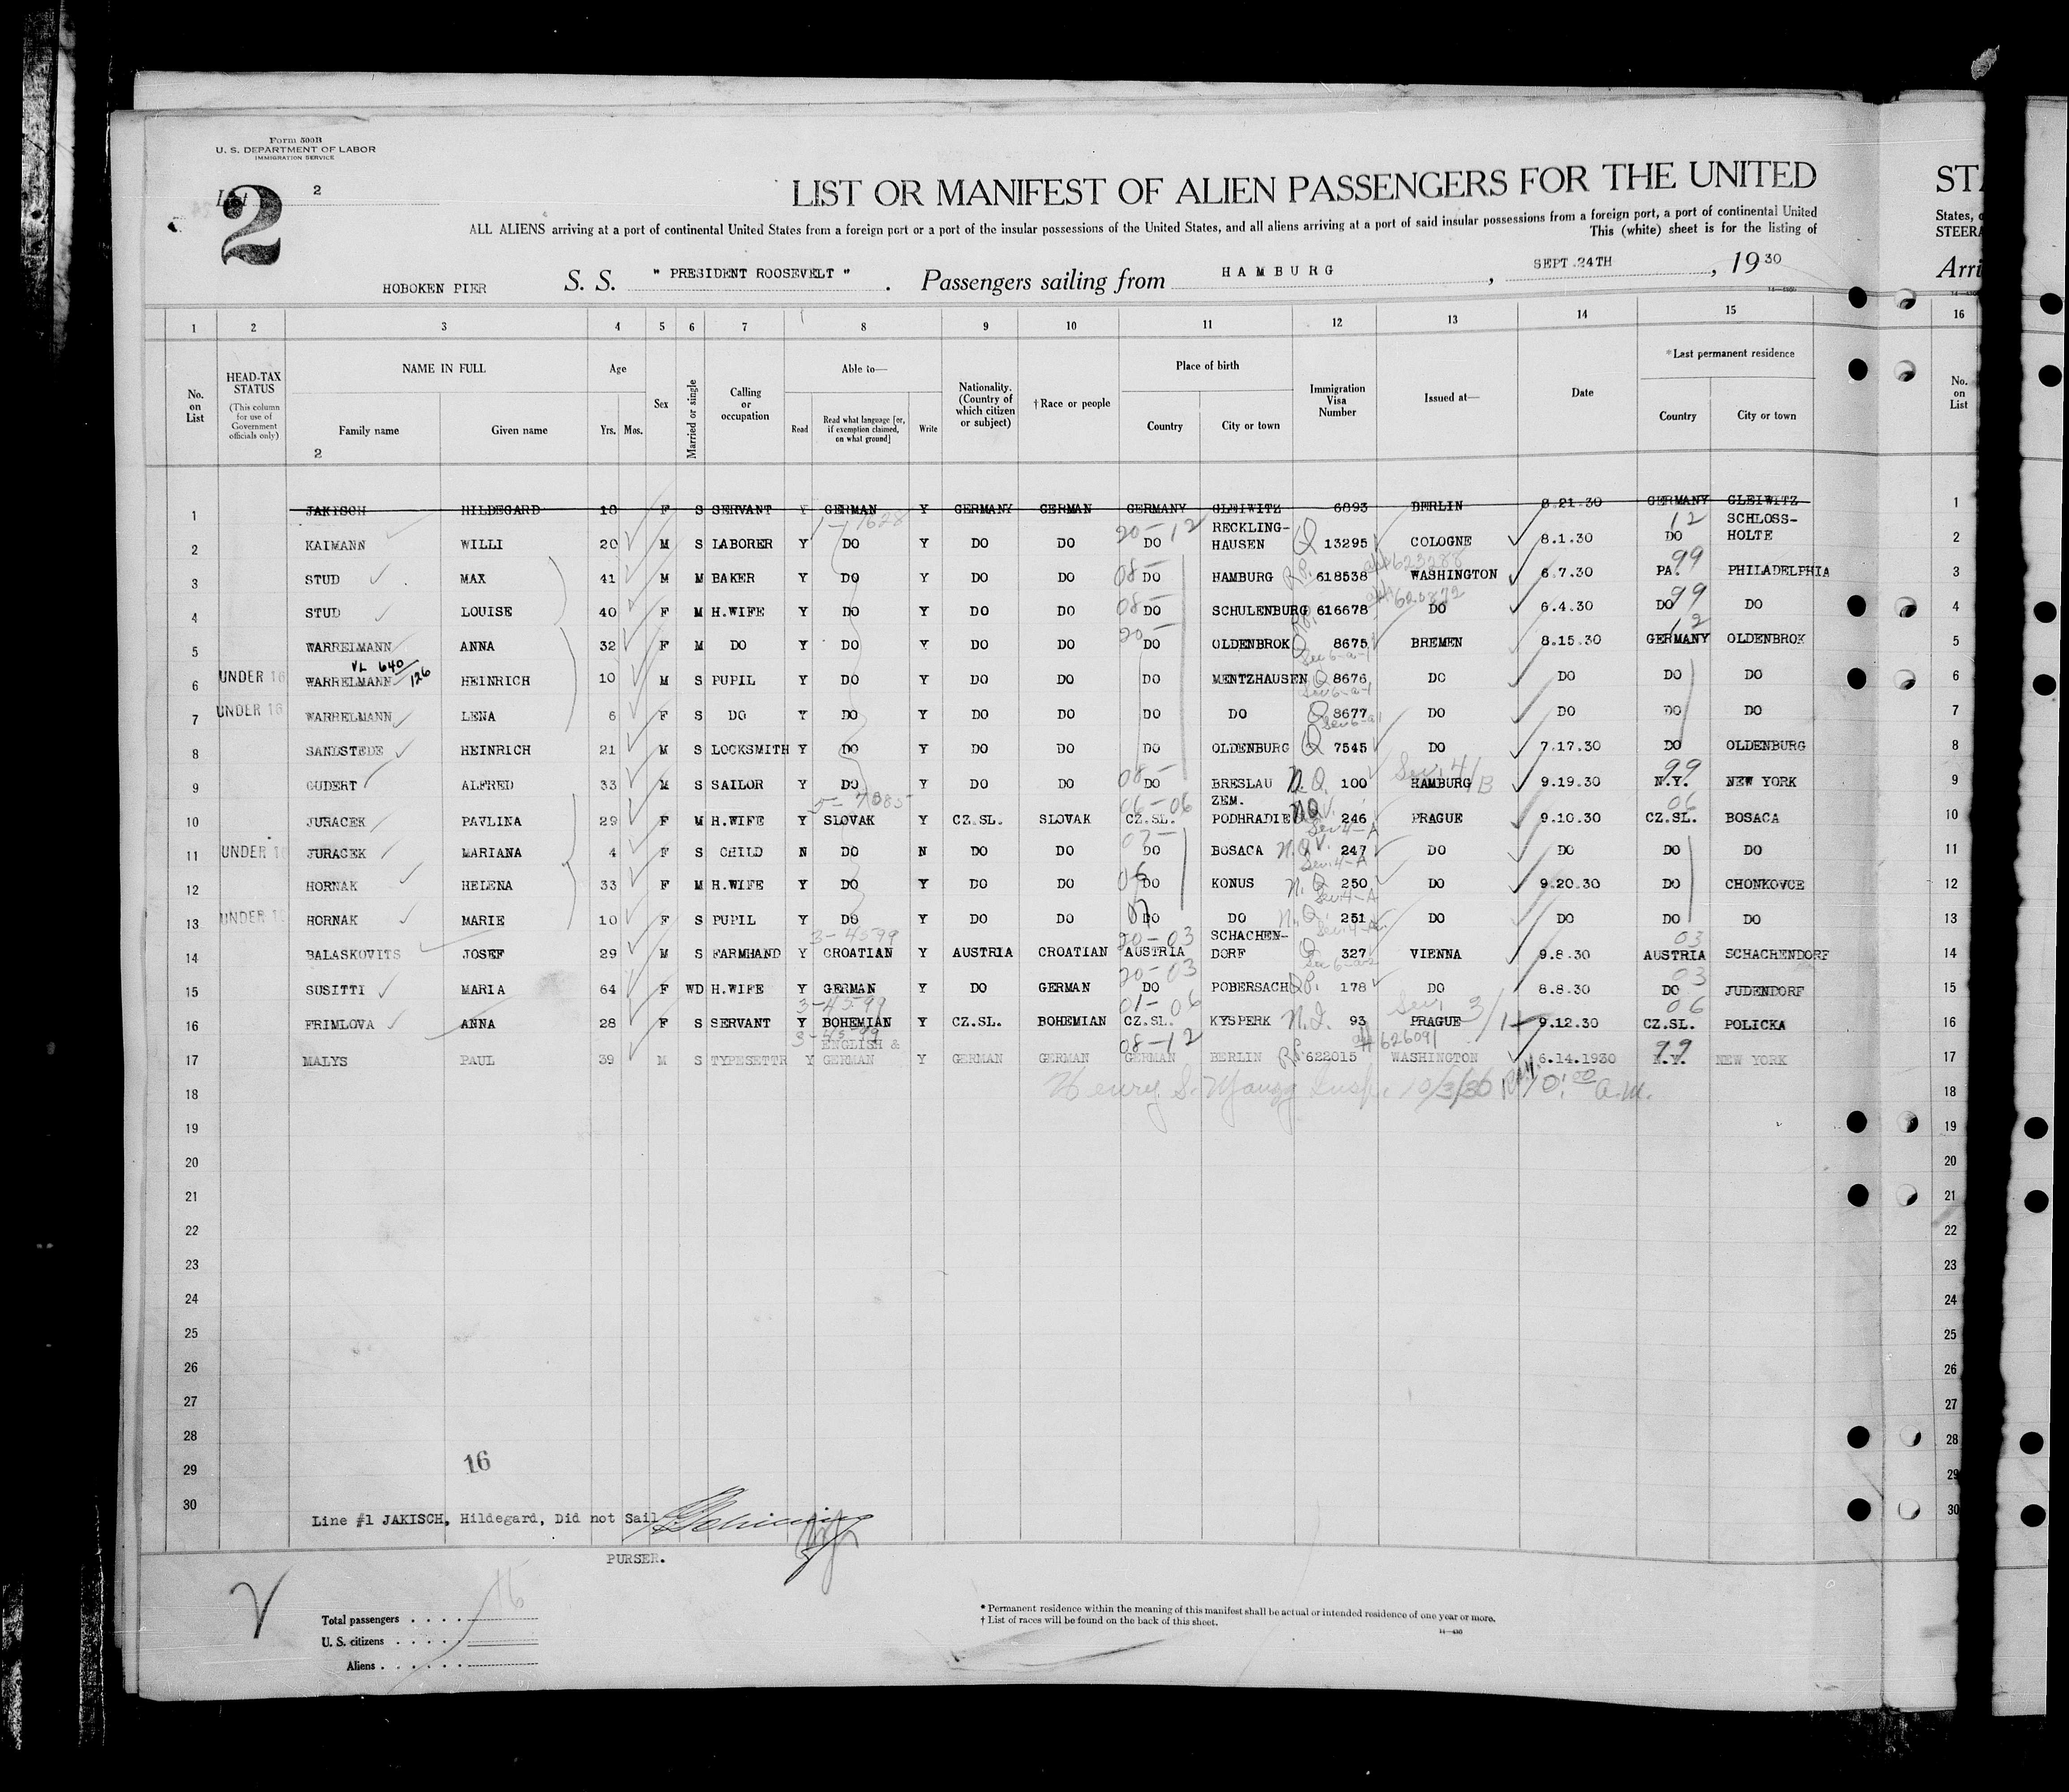 Form 500B
U. S. DEPARTMENT OF LABOR
IMMIGRATION SERVICE
List 2
2
LIST OR MANIFEST OF ALIEN PASSENGERS FOR THE UNITED
STA
ALL ALIENS arriving at a port of continental United States from a foreign port or a port of the insular possessions of the United States, and all aliens arriving at a port of said insular possessions from a foreign port, a port of continental United
States, o
This (white) sheet is for the listing of
STEERA
HOBOKEN PIER S. S. " PRESIDENT ROOSEVELT " . Passengers sailing from HAMBURG , SEPT.24TH , 1930
Arri
1 2 3 4 5 6 7 8 9 10 11 12 13 14 15 16
No. on List
HEAD-TAX STATUS
(This column for use of Government officials only)
NAME IN FULL
Family name Given name
2
Age
Yrs. Mos.
Sex
Married or single
Calling or occupation
Able to—
Read Read what language [or, if exemption claimed, on what ground] Write
Nationality. (Country of which citizen or subject)
†Race or people
Place of birth
Country City or town
Immigration Visa Number
Issued at—
Date
*Last permanent residence
Country City or town
No. on List
1 JAKISCH HILDEGARD 18 F S SERVANT Y GERMAN Y GERMANY GERMAN GERMANY GLEIWITZ 6893 BERLIN 8.21.30 GERMANY GLEIWITZ 1
1-1628 20-12 12
2 KAIMANN WILLI 20 M S LABORER Y DO Y DO DO DO RECKLING-HAUSEN Q 13295 COLOGNE 8.1.30 DO SCHLOSS-HOLTE 2
08- 623288 99
3 STUD MAX 41 M M BAKER Y DO Y DO DO DO HAMBURG R.P. 618538 WASHINGTON 6.7.30 PA. PHILADELPHIA 3
08- 620872 99
4 STUD LOUISE 40 F M H.WIFE Y DO Y DO DO DO SCHULENBURG R.P. 616678 DO 6.4.30 DO DO 4
20- 12
5 WARRELMANN ANNA 32 F M DO Y DO Y DO DO DO OLDENBROK Q 8675 BREMEN 8.15.30 GERMANY OLDENBROK 5
VL 640/126 Sec 6-a-1
6 UNDER 16 WARRELMANN HEINRICH 10 M S PUPIL Y DO Y DO DO DO MENTZHAUSEN Q 8676 DO DO DO DO 6
Sec 6-a-1
7 UNDER 16 WARRELMANN LENA 6 F S DO Y DO Y DO DO DO DO Q 8677 DO DO DO DO 7
Sec 6-a1
8 SANDSTEDE HEINRICH 21 M S LOCKSMITH Y DO Y DO DO DO OLDENBURG Q 7545 DO 7.17.30 DO OLDENBURG 8
08- Sec. 4/B 99
9 GUDERT ALFRED 33 M S SAILOR Y DO Y DO DO DO BRESLAU N.Q. 100 HAMBURG 9.19.30 N.Y. NEW YORK 9
06-06 06
10 JURACEK PAVLINA 29 F M H.WIFE Y SLOVAK Y CZ.SL. SLOVAK CZ.SL. ZEM. PODHRADIE 246 PRAGUE 9.10.30 CZ.SL. BOSACA 10
Sec. 4-A
11 UNDER 16 JURACEK MARIANA 4 F S CHILD N DO N DO DO DO BOSACA 247 DO DO DO DO 11
Sec. 4-A
12 HORNAK HELENA 33 F M H.WIFE Y DO Y DO DO DO KONUS N.Q. 250 DO 9.20.30 DO CHONKOVCE 12
Sec. 4-A
13 UNDER 16 HORNAK MARIE 10 F S PUPIL Y DO Y DO DO DO DO N.Q. 251 DO DO DO DO 13
3-4599 20-03 03
14 BALASKOVITS JOSEF 29 M S FARMHAND Y CROATIAN Y AUSTRIA CROATIAN AUSTRIA SCHACHEN-DORF Q 327 VIENNA 9.8.30 AUSTRIA SCHACHENDORF 14
20-03 03
15 SUSITTI MARIA 64 F WD H.WIFE Y GERMAN Y DO GERMAN DO POBERSACH 178 DO 8.8.30 DO JUDENDORF 15
3-4599 01-06 Sec. 3/1 06
16 FRIMLOVA ANNA 28 F S SERVANT Y BOHEMIAN Y CZ.SL. BOHEMIAN CZ.SL. KYSPERK 93 PRAGUE 9.12.30 CZ.SL. POLICKA 16
3-4599 08-12 626091 99
17 MALYS PAUL 39 M S TYPESETTR Y ENGLISH & GERMAN Y GERMAN GERMAN GERMAN BERLIN R.P. 622015 WASHINGTON 6.14.1930 N.Y. NEW YORK 17
18 Henry S. Insp. 10/3/30 10:00 a.m. 18
19 19
20 20
21 21
22 22
23 23
24 24
25 25
26 26
27 27
28 28
29 16 29
30 30
Line #1 JAKISCH, Hildegard, Did not Sail
PURSER.
Total passengers . . . . 16
U. S. citizens . . . . .
Aliens . . . . . .
* Permanent residence within the meaning of this manifest shall be actual or intended residence of one year or more.
† List of races will be found on the back of this sheet.
14—430